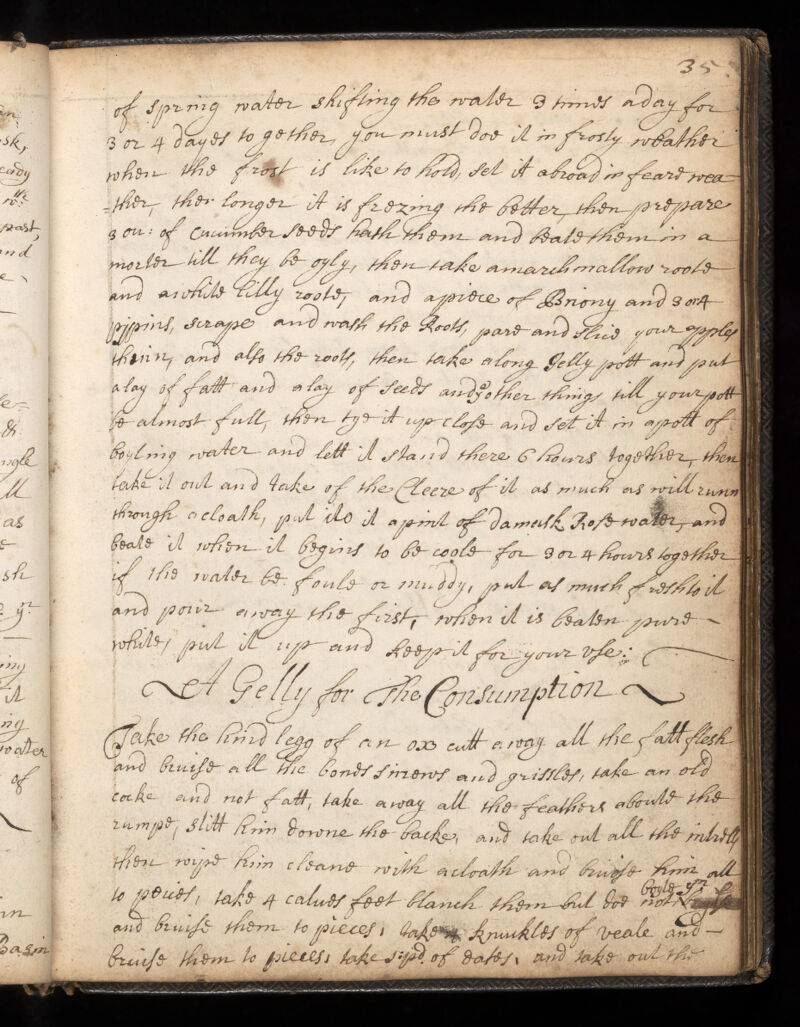 35
of spring water shifting the water 3 times aday for
3 or 4 dayes together, you must doe it in frosty weather
when the frost is like to hold, set it abroad in feare wea
=ther, ther longer it is frezing the better, then prepare
3 ou: of Cucumber seeds hath them and beate them in a
morter till they be oyly, then take amarchmallow roote
and awhite Lilly roote, and apiece of Briony and 3 or 4
pipins, scrape and wash the Roots, pare and slice your apples
thinn, and also the roots, then take along Jelly pott and put
alay of fatt and alay of seeds and yͤ other things till your pott
be almost full, then tye it up close and set it in apott of
boyling water and lett it stand there 6 hours together, then
take it out and take of the Cleere of it as much as will runn
through acloath, put ito it apint of damask Rose water, and
beate it when it begins to be coole for 3 or 4 hours together
if the water be foule or muddy, put as much fresh to it
and pour away the first, when it is beaten pure -
white, put it up and keep it for your use:
A Gelly for The Consumption
Take the hind legg of an ox cutt away all the fatt flesh
and bruise all the bones sinews and grissles, take an old
cocke and not fatt, take away all the feathers aboute the
rumpe, slitt him downe the backe, and take out all the intrells
then wipe him cleane with acloath and bruise him all
to peices, take 4 calves feet blanch them but doe not boyle yᵐ
and bruise them to pieces, take 4 knuckles of veale and -
bruise them to pieces, take s:pd. of dates, and take out the
an
sk,
ready
past,
and
e
se=
&
ingle
ll
as
e
sh
yʳ
ing
it
ing
water
of
in
Basin